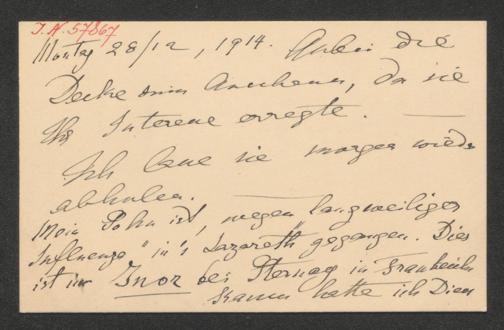 I.N. 57867
Montag 28/12, 1914. Anbei die
Decke zum Anschauen, da sie
Ihr Interesse erregte. —
Ich lasse sie morgen wieder
abholen. —
Mein Sohn ist, wegen langweiliger
Influenza "in's Lazareth" gegangen. Dies
ist in Inor bei Stenay in Frankreich
Kaum hatte ich Dien